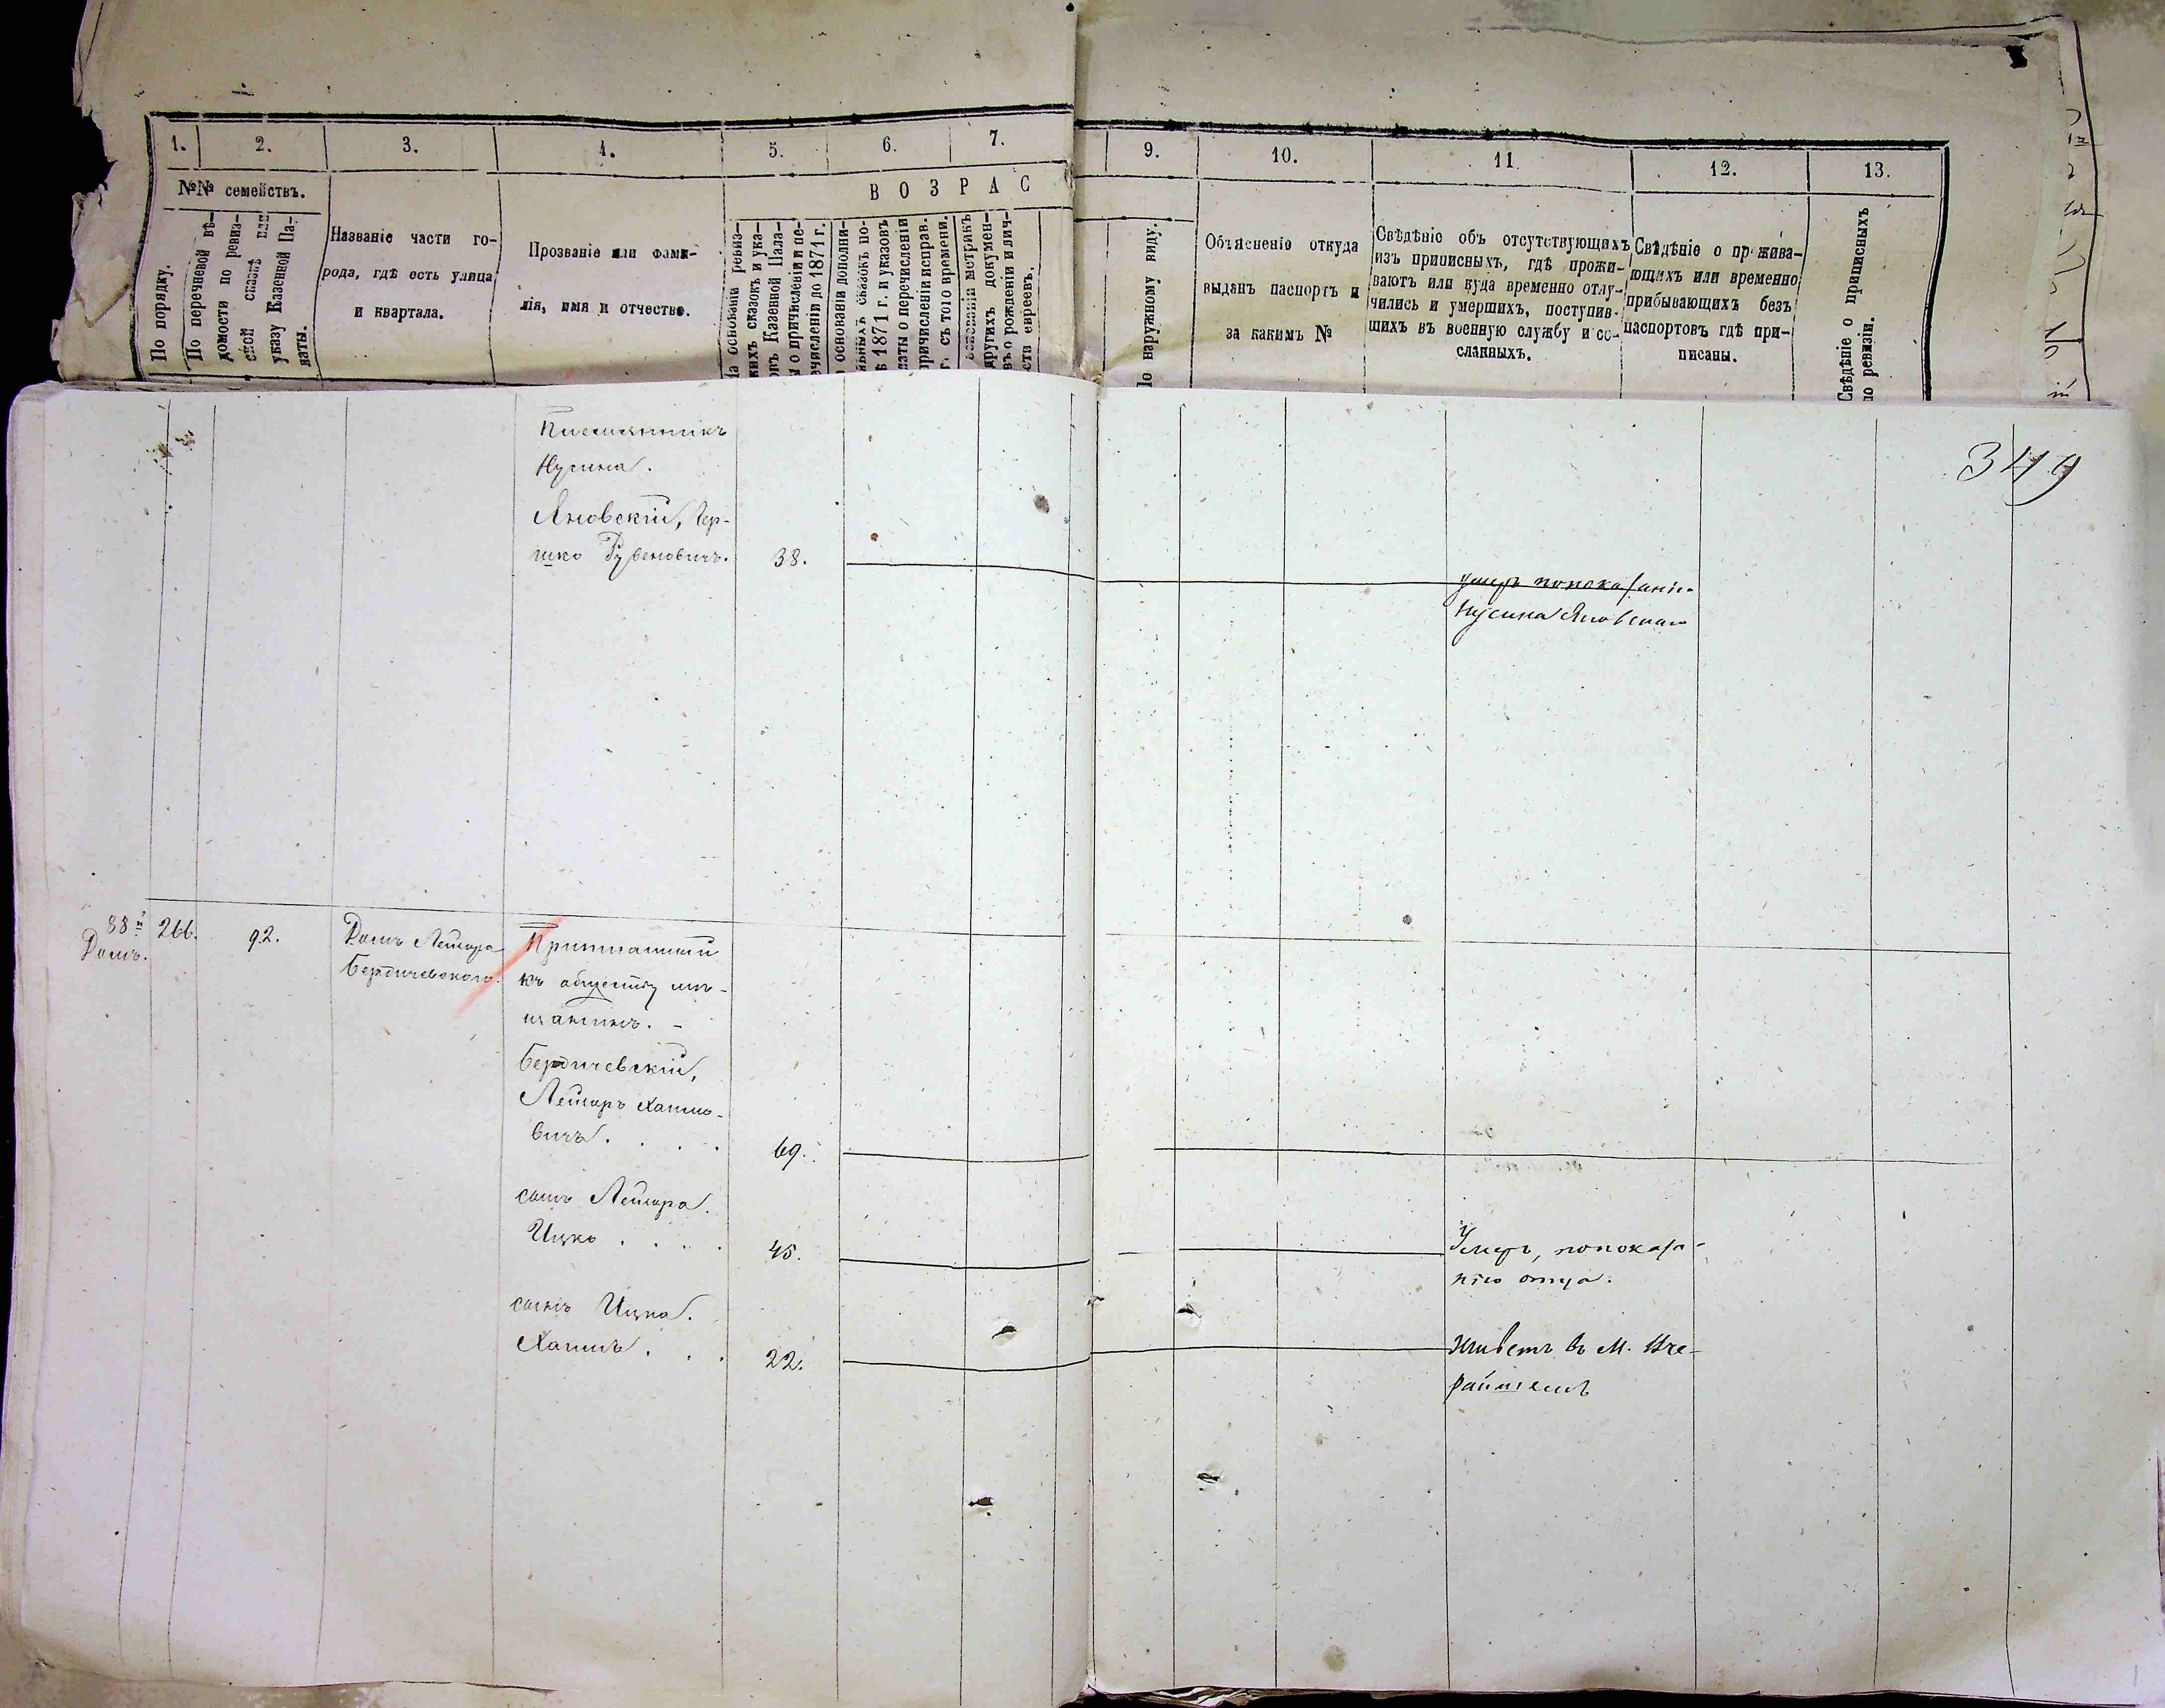 1.
2.
3.
4.
5.
6.
7.
9.
10.
11
12.
13.
№№ семействъ.
По порядку.
По перечневой вѣ-
домости по ревиз-
ской сказкѣ или
указу Казенной Па-
латы.
Названіе части го-
рода, гдѣ есть улица
и квартала.
Прозваніе или фами-
лія, имя и отчество.
ВОЗРАС
На основаніи ревиз-
скихъ сказокъ и ука-
зовъ Казенной Пала-
ты о причисленіи и пе-
речисленіи до 1871 г.
основаніи дополни-
тельныхъ сказокъ по-
1871 г. и указовъ
латы о перечисленіи
причисленіи исправ.
съ того времени.
основаніи метрикъ
другихъ докумен-
въ о рожденіи и лич-
сти евреевъ.
По наружному виду.
Объясненіе откуда
выданъ паспортъ и
за какимъ №
Свѣдѣніе объ отсутствующихъ
изъ приписныхъ, гдѣ прожи-
ваютъ или куда временно отлу-
чились и умершихъ, поступив-
шихъ въ военную службу и со-
сланныхъ.
Свѣдѣніе о прожива-
ющихъ или временно
прибывающихъ безъ
паспортовъ гдѣ при-
писаны.
Свѣдѣніе о приписныхъ
по ревизіи.
349
Племянникъ
Нусина.
Яновскій, Гер-
шко Рувеновичъ.
38.
умеръ по показанію
Нусина Яновскаго
88й
Домъ.
266.
92.
Домъ Лейзора
Бердичевскаго.
Приписанный
къ обществу мѣ-
щанинъ. -
Бердичевскій,
Лейзоръ Хаимо-
вичъ. . . .
69.
сынъ Лейзора.
Ицко . . . .
45.
Умеръ, по показа-
нію отца.
сынъ Ицка.
Хаимъ . . .
22.
живетъ въ М. Пче-